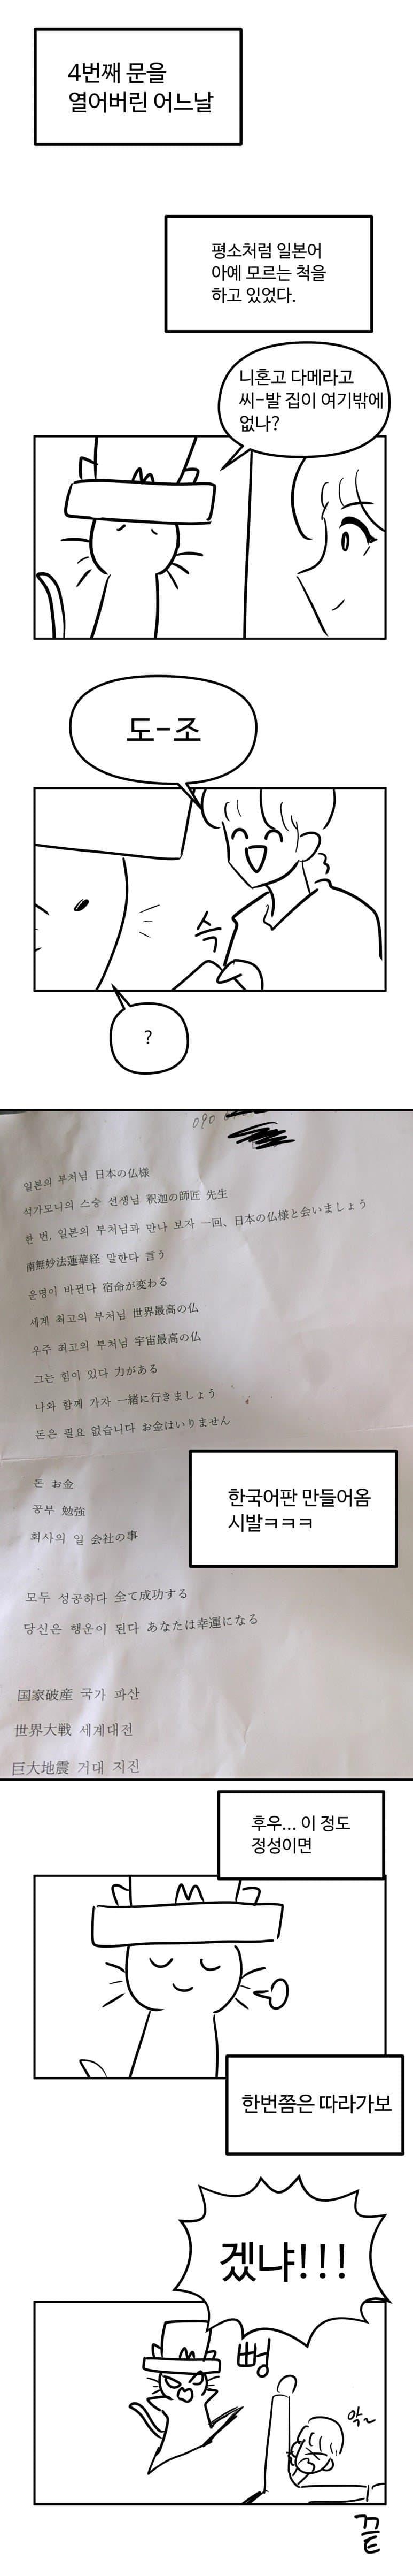 4번째 문을
열어버린 어느날
평소처럼 일본어
아예 모르는 척을
하고 있었다.
니혼고 다메라고
씨-발 집이 여기밖에
없나?
도-조
슥
?
090
일본의 부처님 日本の仏様
석가모니의 스승 선생님 釈迦の師匠 先生
한 번, 일본의 부처님과 만나 보자 一回、日本の仏様と会いましょう
南無妙法蓮華経 말한다 言う
운명이 바뀐다 宿命が変わる
세계 최고의 부처님 世界最高の仏
우주 최고의 부처님 宇宙最高の仏
그는 힘이 있다 力がある
나와 함께 가자 一緒に行きましょう
돈은 필요 없습니다 お金はいりません
돈 お金
공부 勉強
회사의 일 会社の事
한국어판 만들어옴
시발ㅋㅋㅋ
모두 성공하다 全て成功する
당신은 행운이 된다 あなたは幸運になる
国家破産 국가 파산
世界大戦 세계대전
巨大地震 거대 지진
후우... 이 정도
정성이면
한번쯤은 따라가보
겠냐!!!
뻥
악~
끝